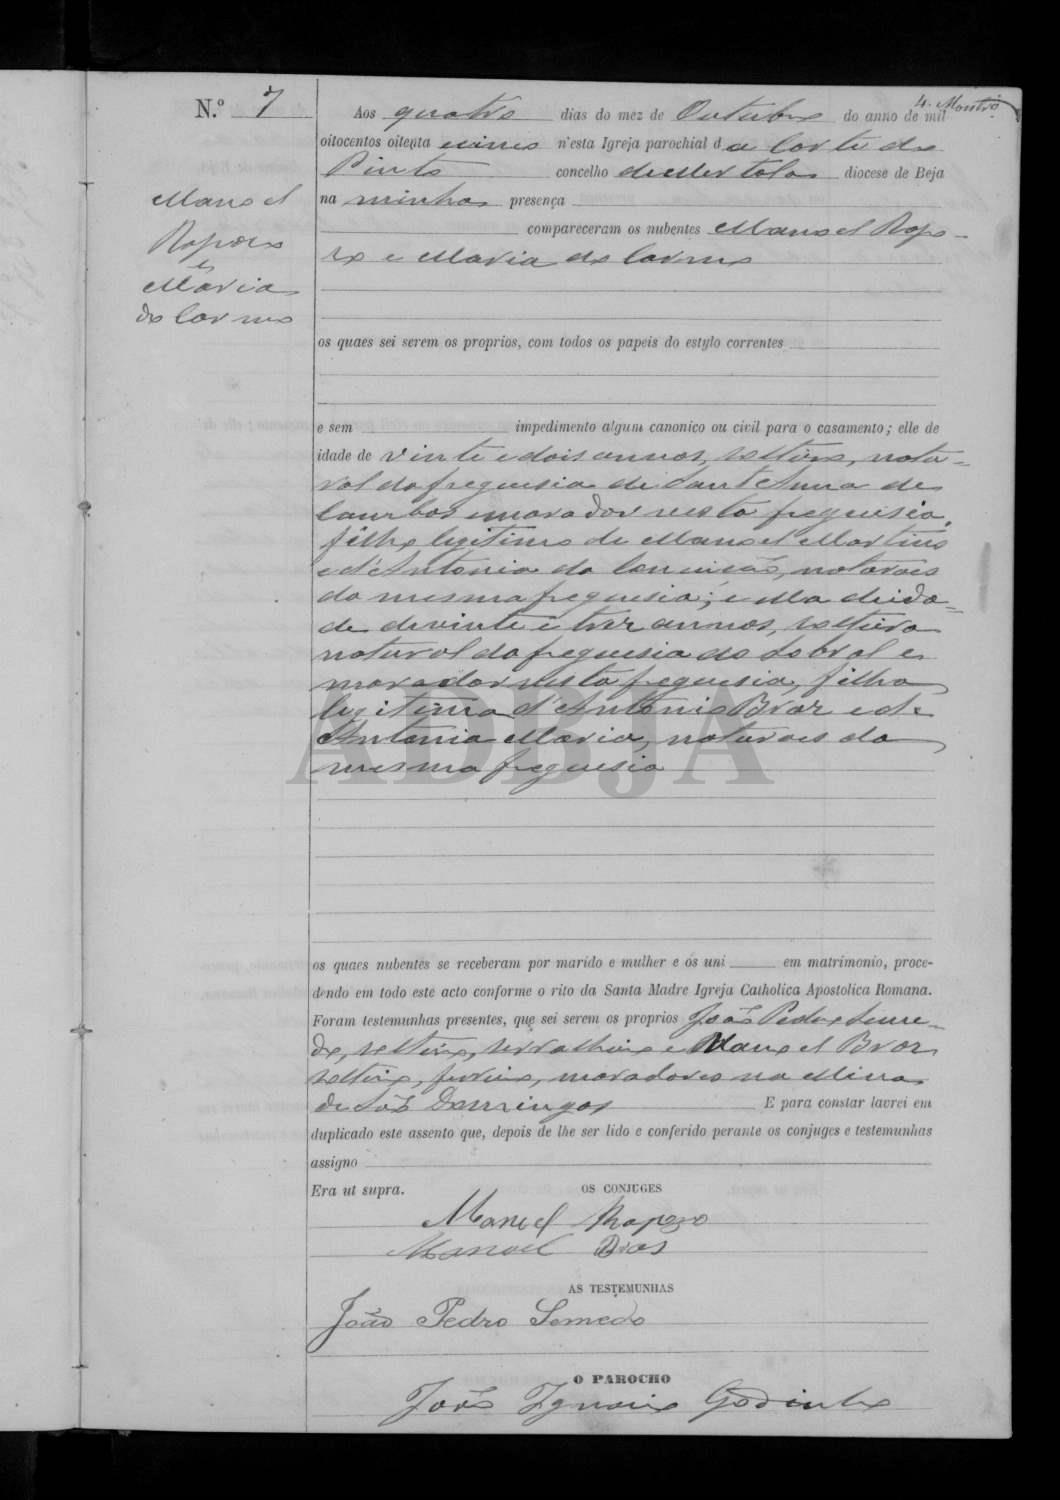 N.º 7
4. Montrº
Aos quatro dias do mez de Outubro do anno de mil
oitocentos oitenta e cinco n'esta Igreja parochial da Corte do
Pinto concelho de Mertola diocese de Beja
na minha presença
compareceram os nubentes Manoel Rapo-
zo e Maria do Carmo
Manoel
Rapozo
e
Maria
do Carmo
os quaes sei serem os proprios, com todos os papeis do estylo correntes
e sem impedimento algum canonico ou civil para o casamento; elle de
idade de vinte e dois annos, solteiro, natu-
ral da freguesia de Sant'Anna de
Cambas e morador nesta freguesia,
filho legitimo de Manoel Martins
e d'Antonia da Conceição, naturaes
da mesma freguesia; e ella de ida-
de de vinte e trez annos, solteira
natural da freguesia do Sobral e
morador nesta freguesia, filha
legitima d'Antonio Braz e de
Antonia Maria, naturaes da
mesma freguesia
ADBJA
os quaes nubentes se receberam por marido e mulher e os uni em matrimonio, proce-
dendo em todo este acto conforme o rito da Santa Madre Igreja Catholica Apostolica Romana.
Foram testemunhas presentes, que sei serem os proprios João Pedro Seme-
do, solteiro, serralheiro e Manoel Braz
solteiro, ferreiro, moradores na Mina
de São Domingos E para constar lavrei em
duplicado este assento que, depois de lhe ser lido e conferido perante os conjuges e testemunhas
assigno
Era ut supra.
OS CONJUGES
Manuel Rapozo
Manoel Bras
AS TESTEMUNHAS
João Pedro Semedo
O PAROCHO
João Ignacio Godinho